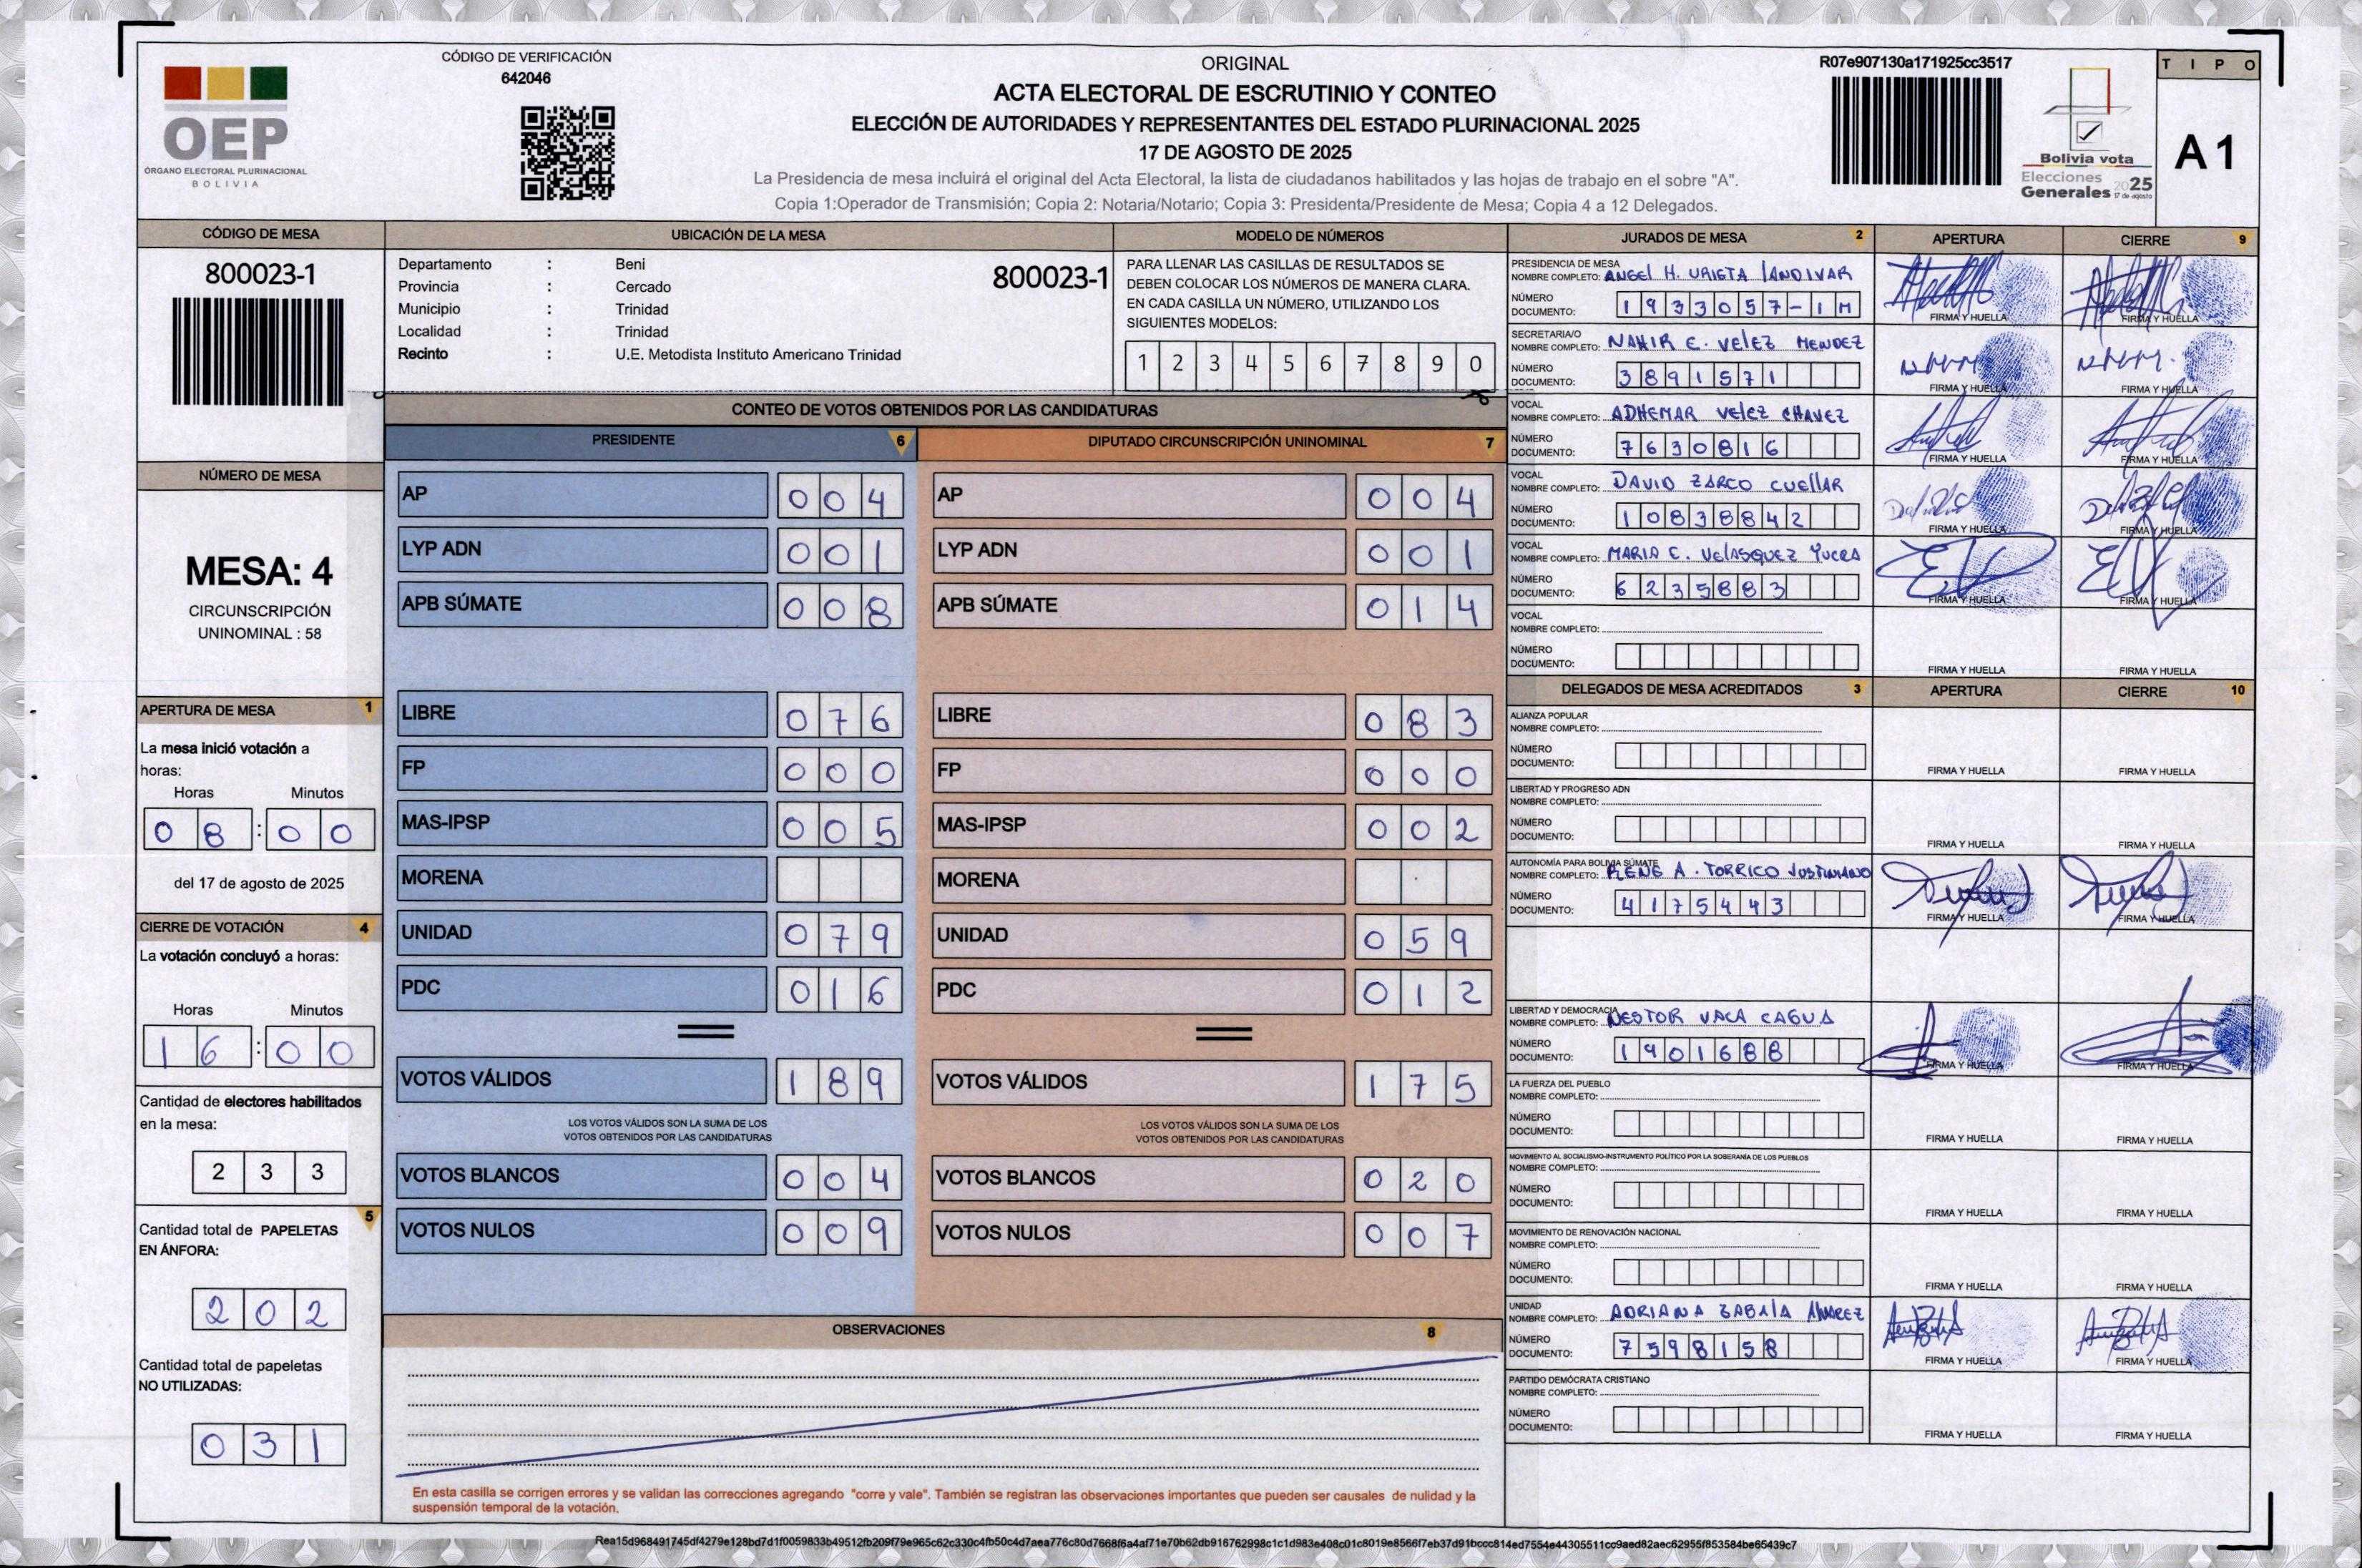 CÓDIGO DE VERIFICACIÓN
642046
OEP
ÓRGANO ELECTORAL PLURINACIONAL
BOLIVIA
ORIGINAL
ACTA ELECTORAL DE ESCRUTINIO Y CONTEO
ELECCIÓN DE AUTORIDADES Y REPRESENTANTES DEL ESTADO PLURINACIONAL 2025
17 DE AGOSTO DE 2025
La Presidencia de mesa incluirá el original del Acta Electoral, la lista de ciudadanos habilitados y las hojas de trabajo en el sobre "A".
Copia 1:Operador de Transmisión; Copia 2: Notaria/Notario; Copia 3: Presidenta/Presidente de Mesa; Copia 4 a 12 Delegados.
R07e907130a171925cc3517
Bolivia vota
Elecciones
Generales 2025
17 de agosto
TIPO
A1
CÓDIGO DE MESA
800023-1
UBICACIÓN DE LA MESA
Departamento : Beni
800023-1
Provincia : Cercado
Municipio : Trinidad
Localidad : Trinidad
Recinto : U.E. Metodista Instituto Americano Trinidad
MODELO DE NÚMEROS
PARA LLENAR LAS CASILLAS DE RESULTADOS SE
DEBEN COLOCAR LOS NÚMEROS DE MANERA CLARA.
EN CADA CASILLA UN NÚMERO, UTILIZANDO LOS
SIGUIENTES MODELOS:
1 2 3 4 5 6 7 8 9 0
NÚMERO DE MESA
MESA: 4
CIRCUNSCRIPCIÓN
UNINOMINAL : 58
APERTURA DE MESA 1
La mesa inició votación a
horas:
Horas Minutos
08 : 00
del 17 de agosto de 2025
CIERRE DE VOTACIÓN 4
La votación concluyó a horas:
Horas Minutos
16 : 00
Cantidad de electores habilitados
en la mesa:
233
5
Cantidad total de PAPELETAS
EN ÁNFORA:
202
Cantidad total de papeletas
NO UTILIZADAS:
031
CONTEO DE VOTOS OBTENIDOS POR LAS CANDIDATURAS
PRESIDENTE 6
AP 004
LYP ADN 001
APB SÚMATE 008
LIBRE 076
FP 000
MAS-IPSP 005
MORENA
UNIDAD 079
PDC 016
VOTOS VÁLIDOS 189
LOS VOTOS VÁLIDOS SON LA SUMA DE LOS
VOTOS OBTENIDOS POR LAS CANDIDATURAS
VOTOS BLANCOS 004
VOTOS NULOS 009
DIPUTADO CIRCUNSCRIPCIÓN UNINOMINAL 7
AP 004
LYP ADN 001
APB SÚMATE 014
LIBRE 083
FP 000
MAS-IPSP 002
MORENA
UNIDAD 059
PDC 012
VOTOS VÁLIDOS 175
LOS VOTOS VÁLIDOS SON LA SUMA DE LOS
VOTOS OBTENIDOS POR LAS CANDIDATURAS
VOTOS BLANCOS 020
VOTOS NULOS 007
OBSERVACIONES 8
En esta casilla se corrigen errores y se validan las correcciones agregando "corre y vale". También se registran las observaciones importantes que pueden ser causales de nulidad y la
suspensión temporal de la votación.
JURADOS DE MESA 2 APERTURA CIERRE 9
PRESIDENCIA DE MESA
NOMBRE COMPLETO: ANGEL H. URIETA LANDIVAR
NÚMERO
DOCUMENTO: 1933057-1M
FIRMA Y HUELLA FIRMA Y HUELLA
SECRETARIA/O
NOMBRE COMPLETO: NAHIR E. VELEZ MENDEZ
NÚMERO
DOCUMENTO: 3891571
FIRMA Y HUELLA FIRMA Y HUELLA
VOCAL
NOMBRE COMPLETO: ADHEMAR VELEZ CHAVEZ
NÚMERO
DOCUMENTO: 7630816
FIRMA Y HUELLA FIRMA Y HUELLA
VOCAL
NOMBRE COMPLETO: DAVID ZARCO CUELLAR
NÚMERO
DOCUMENTO: 10838842
FIRMA Y HUELLA FIRMA Y HUELLA
VOCAL
NOMBRE COMPLETO: MARIA E. VELASQUEZ YUCRA
NÚMERO
DOCUMENTO: 6235883
FIRMA Y HUELLA FIRMA Y HUELLA
VOCAL
NOMBRE COMPLETO:
NÚMERO
DOCUMENTO:
FIRMA Y HUELLA FIRMA Y HUELLA
DELEGADOS DE MESA ACREDITADOS 3 APERTURA CIERRE 10
ALIANZA POPULAR
NOMBRE COMPLETO:
NÚMERO
DOCUMENTO:
FIRMA Y HUELLA FIRMA Y HUELLA
LIBERTAD Y PROGRESO ADN
NOMBRE COMPLETO:
NÚMERO
DOCUMENTO:
FIRMA Y HUELLA FIRMA Y HUELLA
AUTONOMÍA PARA BOLIVIA SÚMATE
NOMBRE COMPLETO: RENE A. TORRICO JUSTINIANO
NÚMERO
DOCUMENTO: 4175443
FIRMA Y HUELLA FIRMA Y HUELLA
LIBERTAD Y DEMOCRACIA
NOMBRE COMPLETO: NESTOR VACA CAGUA
NÚMERO
DOCUMENTO: 1901688
FIRMA Y HUELLA FIRMA Y HUELLA
LA FUERZA DEL PUEBLO
NOMBRE COMPLETO:
NÚMERO
DOCUMENTO:
FIRMA Y HUELLA FIRMA Y HUELLA
MOVIMIENTO AL SOCIALISMO-INSTRUMENTO POLÍTICO POR LA SOBERANÍA DE LOS PUEBLOS
NOMBRE COMPLETO:
NÚMERO
DOCUMENTO:
FIRMA Y HUELLA FIRMA Y HUELLA
MOVIMIENTO DE RENOVACIÓN NACIONAL
NOMBRE COMPLETO:
NÚMERO
DOCUMENTO:
FIRMA Y HUELLA FIRMA Y HUELLA
UNIDAD
NOMBRE COMPLETO: ADRIANA ZABALA ALVAREZ
NÚMERO
DOCUMENTO: 7598158
FIRMA Y HUELLA FIRMA Y HUELLA
PARTIDO DEMÓCRATA CRISTIANO
NOMBRE COMPLETO:
NÚMERO
DOCUMENTO:
FIRMA Y HUELLA FIRMA Y HUELLA